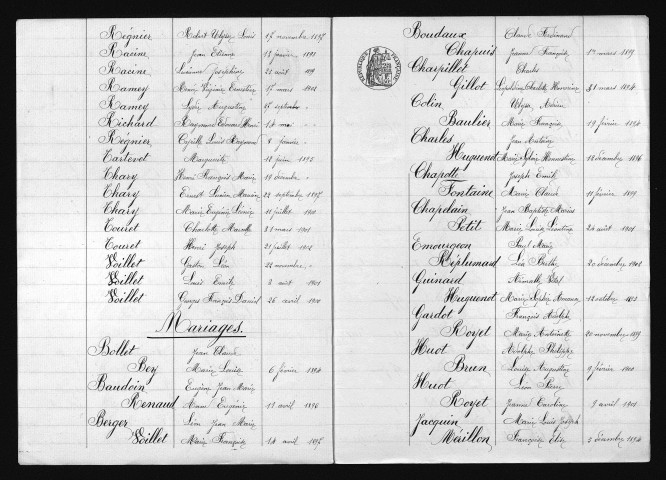 Régnier Robert Ulysse Louis 15 novembre 1895
Racine Jean Etienne 12 janvier
Racine Lucienne Joséphine 21 août 1899
Ramey Marie Virginie Ernestine 17 mars 1901
Ramey Augustine 17 septembre
Richard Raymond Edmond Henri 14 mai
Régnier Camille Louis Raymond 8 janvier
Tartevet Marguerite 12 juin 1895
Thary Henri François Marie 19 décembre
Thary Ernest Lucien Maurice 22 septembre 1895
Thary Marie Eugénie Louise 11 juillet 1901
Touret Charlotte Marcelle 31 mars 1901
Touret Henri Joseph 21 juillet 1902
Voillet Gaston Léon 22 novembre
Voillet Louis Emile 2 août 1901
Voillet Georges François Daniel 26 avril 1900
Mariages.
Bollet Jean Claude
Bey Marie Louise 6 février 1894
Baudoin Eugène Jean Marie
Renaud Eugénie 11 avril 1896
Berger Léon Jean Marie
Voillet Marie Françoise 14 avril 1895
Boudaux Claude Ferdinand
Chapuis Jeanne Françoise 1er mars 1899
Charpillet Charles
Gillot Charlotte 31 mars 1894
Colin Ulysse
Baulier Marie Françoise 19 février 1894
Charles Jean Antoine
Huguenot Marie 12 décembre 1896
Chapotte Joseph Emile
Fontaine Marie Claude 11 février 1899
Chapelain Jean Baptiste Marius
Petit Marie Louise Léontine 24 août 1901
Emourgeon Paul Marie
Déplumard Léa Berthe 20 décembre 1902
Guinard
Huguenot Marie 12 octobre 1893
Gardot François Adolphe
Royet Marie Antoinette 20 novembre 1899
Huot Adolphe Philippe
Brun Louise Augustine 9 février 1901
Huot Léon
Royet Jeanne Caroline 9 avril 1901
Jacquin Marie Louis Joseph
Mérillon Françoise 3 décembre 1894
REPUBLIQUE FRANÇAISE